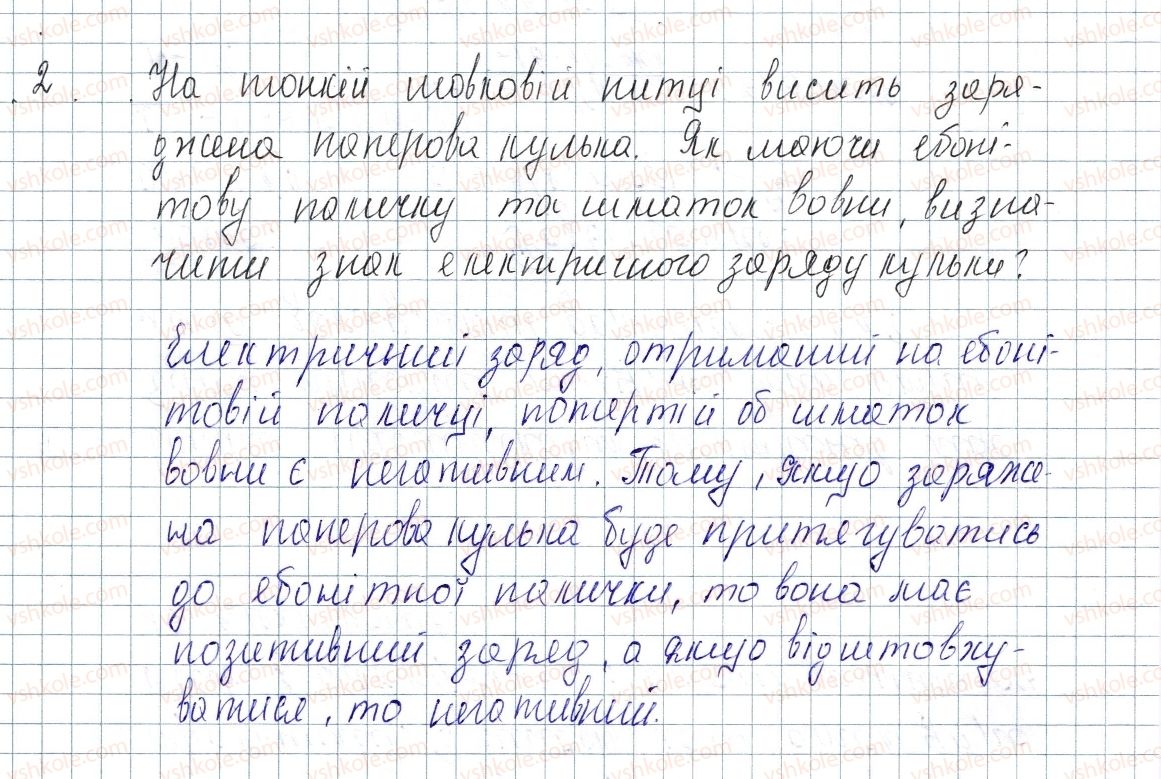 2. На тонкій шовковій нитці висить заря-
джена паперова кулька. Як маючи ебоні-
тову паличку та шматок вовни, визна-
чити знак електричного заряду кульки?
Електричний заряд, отриманий на ебоні-
товій паличці, потертій об шматок
вовни є негативним. Тому, якщо заряже-
на паперова кулька буде притягуватись
до ебонітної палички, то вона має
позитивний заряд, а якщо відштовху-
ватися, то негативний.